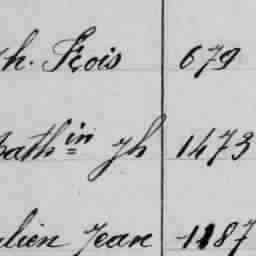 ph. Frois 679
Bathin Jh 1473
ulien Jean 1187